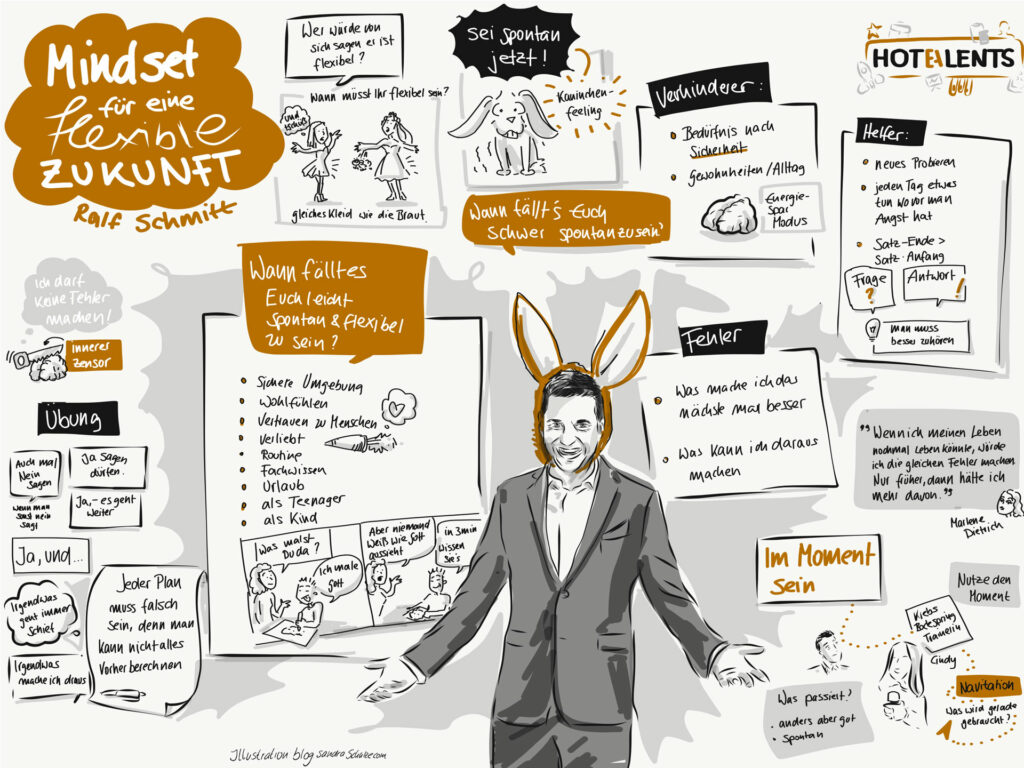 Mindset
für eine
flexible
ZUKUNFT
Ralf Schmitt
Wer würde von
sich sagen er ist
flexibel?
Wann müsst Ihr flexibel sein?
und
tschüß
gleiches Kleid wie die Braut.
Sei spontan
jetzt!
Kaninchen-
feeling
Wann fällt's Euch
schwer spontan zu sein?
Verhinderer:
Bedürfnis nach
Sicherheit
Gewohnheiten/Alltag
Energie-
Spar
Modus
HOTELLENTS
Helfer:
neues Probieren
jeden Tag etwas
tun wovor man
Angst hat
Satz-Ende >
Satz-Anfang
Frage
?
Antwort
!
man muss
besser zuhören
Ich darf
keine Fehler
machen!
innerer
Zensor
Übung
Auch mal
Nein
sagen
wenn man
sonst nein
sagt
Ja sagen
dürfen.
Ja,- es geht
weiter
Ja, und...
Irgendwas
geht immer
schief
Irgendwas
mache ich draus
Jeder Plan
muss falsch
sein, denn man
kann nicht alles
vorherberechnen
Wann fällt es
Euch leicht
spontan & flexibel
zu sein?
Sichere Umgebung
Wohlfühlen
Vertrauen zu Menschen
Verliebt
Routine
Fachwissen
Urlaub
als Teenager
als Kind
Was malst
Du da?
Ich male
Gott
Aber niemand
weiß wie Gott
aussieht
in 3 min
wissen
Sie's
Fehler
Was mache ich das
nächste mal besser
Was kann ich daraus
machen
"Wenn ich meinen Leben
nochmal Leben könnte, würde
ich die gleichen Fehler machen.
Nur früher, dann hätte ich
mehr davon."
Marlene
Dietrich
Im Moment
sein
Nutze den
Moment
Krebs
Bodespring
Tramelin
Cindy
Navitation
Was wird gerade
gebraucht?
Was passiert?
anders aber gut
spontan
Illustration blog sandra Schulze.com